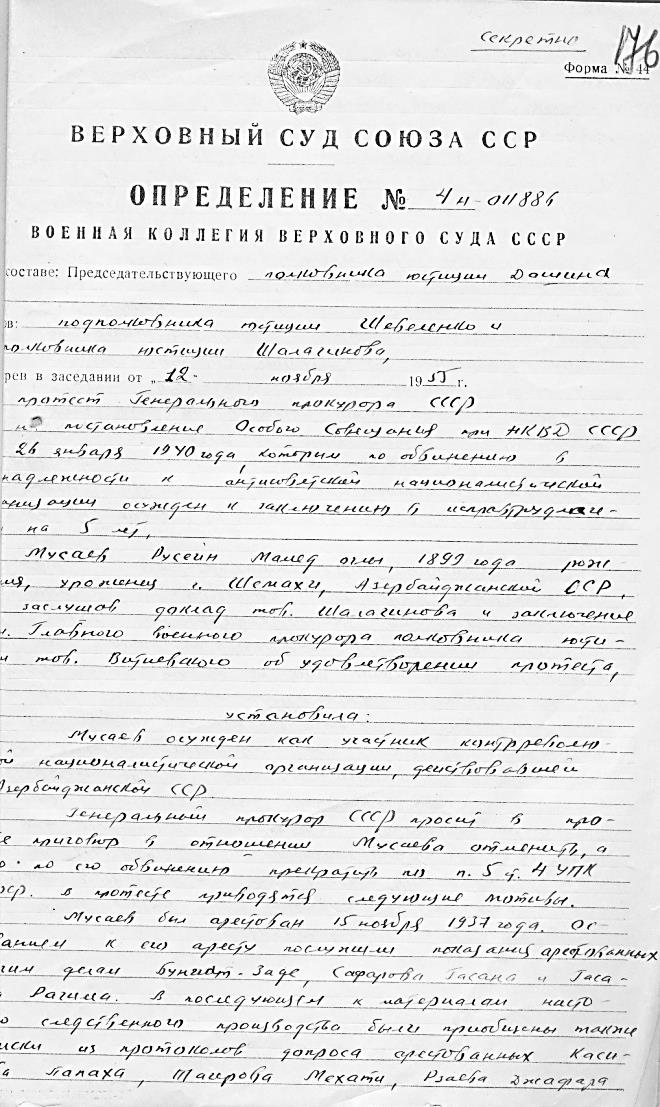 Секретно
176
Форма № 44
ВЕРХОВНЫЙ СУД СОЮЗА ССР
ОПРЕДЕЛЕНИЕ № 4н-011886
ВОЕННАЯ КОЛЛЕГИЯ ВЕРХОВНОГО СУДА СССР
составе: Председательствующего полковника юстиции Дашина
ов: подполковника юстиции Шевеленко и
полковника юстиции Шалагинова,
рев в заседании от „12" ноября 1955 г.
протест Генерального прокурора СССР
на постановление Особого Совещания при НКВД СССР
26 января 1940 года которым по обвинению в
надлежности к антисоветской националистической
анизации осужден к заключению в исправтрудлаге-
на 5 лет,
Мусаев Гусейн Мамед оглы, 1899 года рож-
ия, уроженец г. Шемахи, Азербайджанской ССР,
заслушав доклад тов. Шалагинова и заключение
м. Главного военного прокурора полковника юсти-
и тов. об удовлетворении протеста,
установила:
Мусаев осужден как участник контрреволю-
ой националистической организации, действовавшей
Азербайджанской ССР
Генеральный прокурор СССР просит в про-
е приговор в отношении Мусаева отменить, а
о по его обвинению прекратить по п. 5 ст. 4 УПК
ср. в протесте приводятся следующие мотивы.
Мусаев был арестован 15 ноября 1937 года. Ос-
ванием к его аресту послужили показания арестованных
гим делам Буниат-Заде, Сафарова Гасана и Гаса-
а Рагима. в последующем к материалам насто-
о следственного производства были приобщены также
иски из протоколов допроса арестованных Каси-
а Папаха, Таирова Мехати, Рзаева Джафара